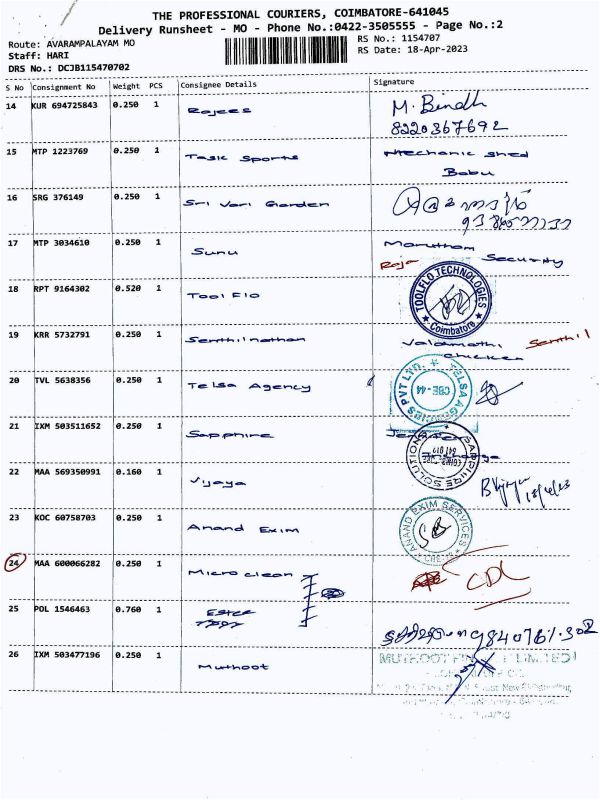 THE PROFESSIONAL COURIERS, COIMBATORE-641045
Delivery Runsheet - MO - Phone No.:0422-3505555 - Page No.:2
Route: AVARAMPALAYAM MO
RS No.: 1154707
Staff: HARI
RS Date: 18-Apr-2023
DRS No.: DCJB115470702
S No Consignment No Weight PCS Consignee Details Signature
14 KUR 694725843 0.250 1 Rajees M. Bindh
8220367692
15 MTP 1223769 0.250 1 Task Sports Mechanic shed
Babu
16 SRG 376149 0.250 1 Sri Vari Garden
17 MTP 3034610 0.250 1 Sunu Marutham
Raja Security
18 RPT 9164302 0.520 1 Tool Flo TOOLFLO TECHNOLOGIES
Coimbatore
19 KRR 5732791 0.250 1 Senthilnathan Valarmathi Senthil
chicken
20 TVL 5638356 0.250 1 Telsa Agency TELSA AGENCIES PVT LTD.
CBE-44
21 IXM 503511652 0.250 1 Sapphire SAPPHIRE SOLUTIONS
22 MAA 569350991 0.160 1 Vijaya
23 KOC 60758703 0.250 1 Anand Exim ANAND EXIM SERVICES
24 MAA 600066282 0.250 1 Microclean
25 POL 1546463 0.760 1
26 IXM 503477196 0.250 1 Muthoot MUTHOOT LIMITED